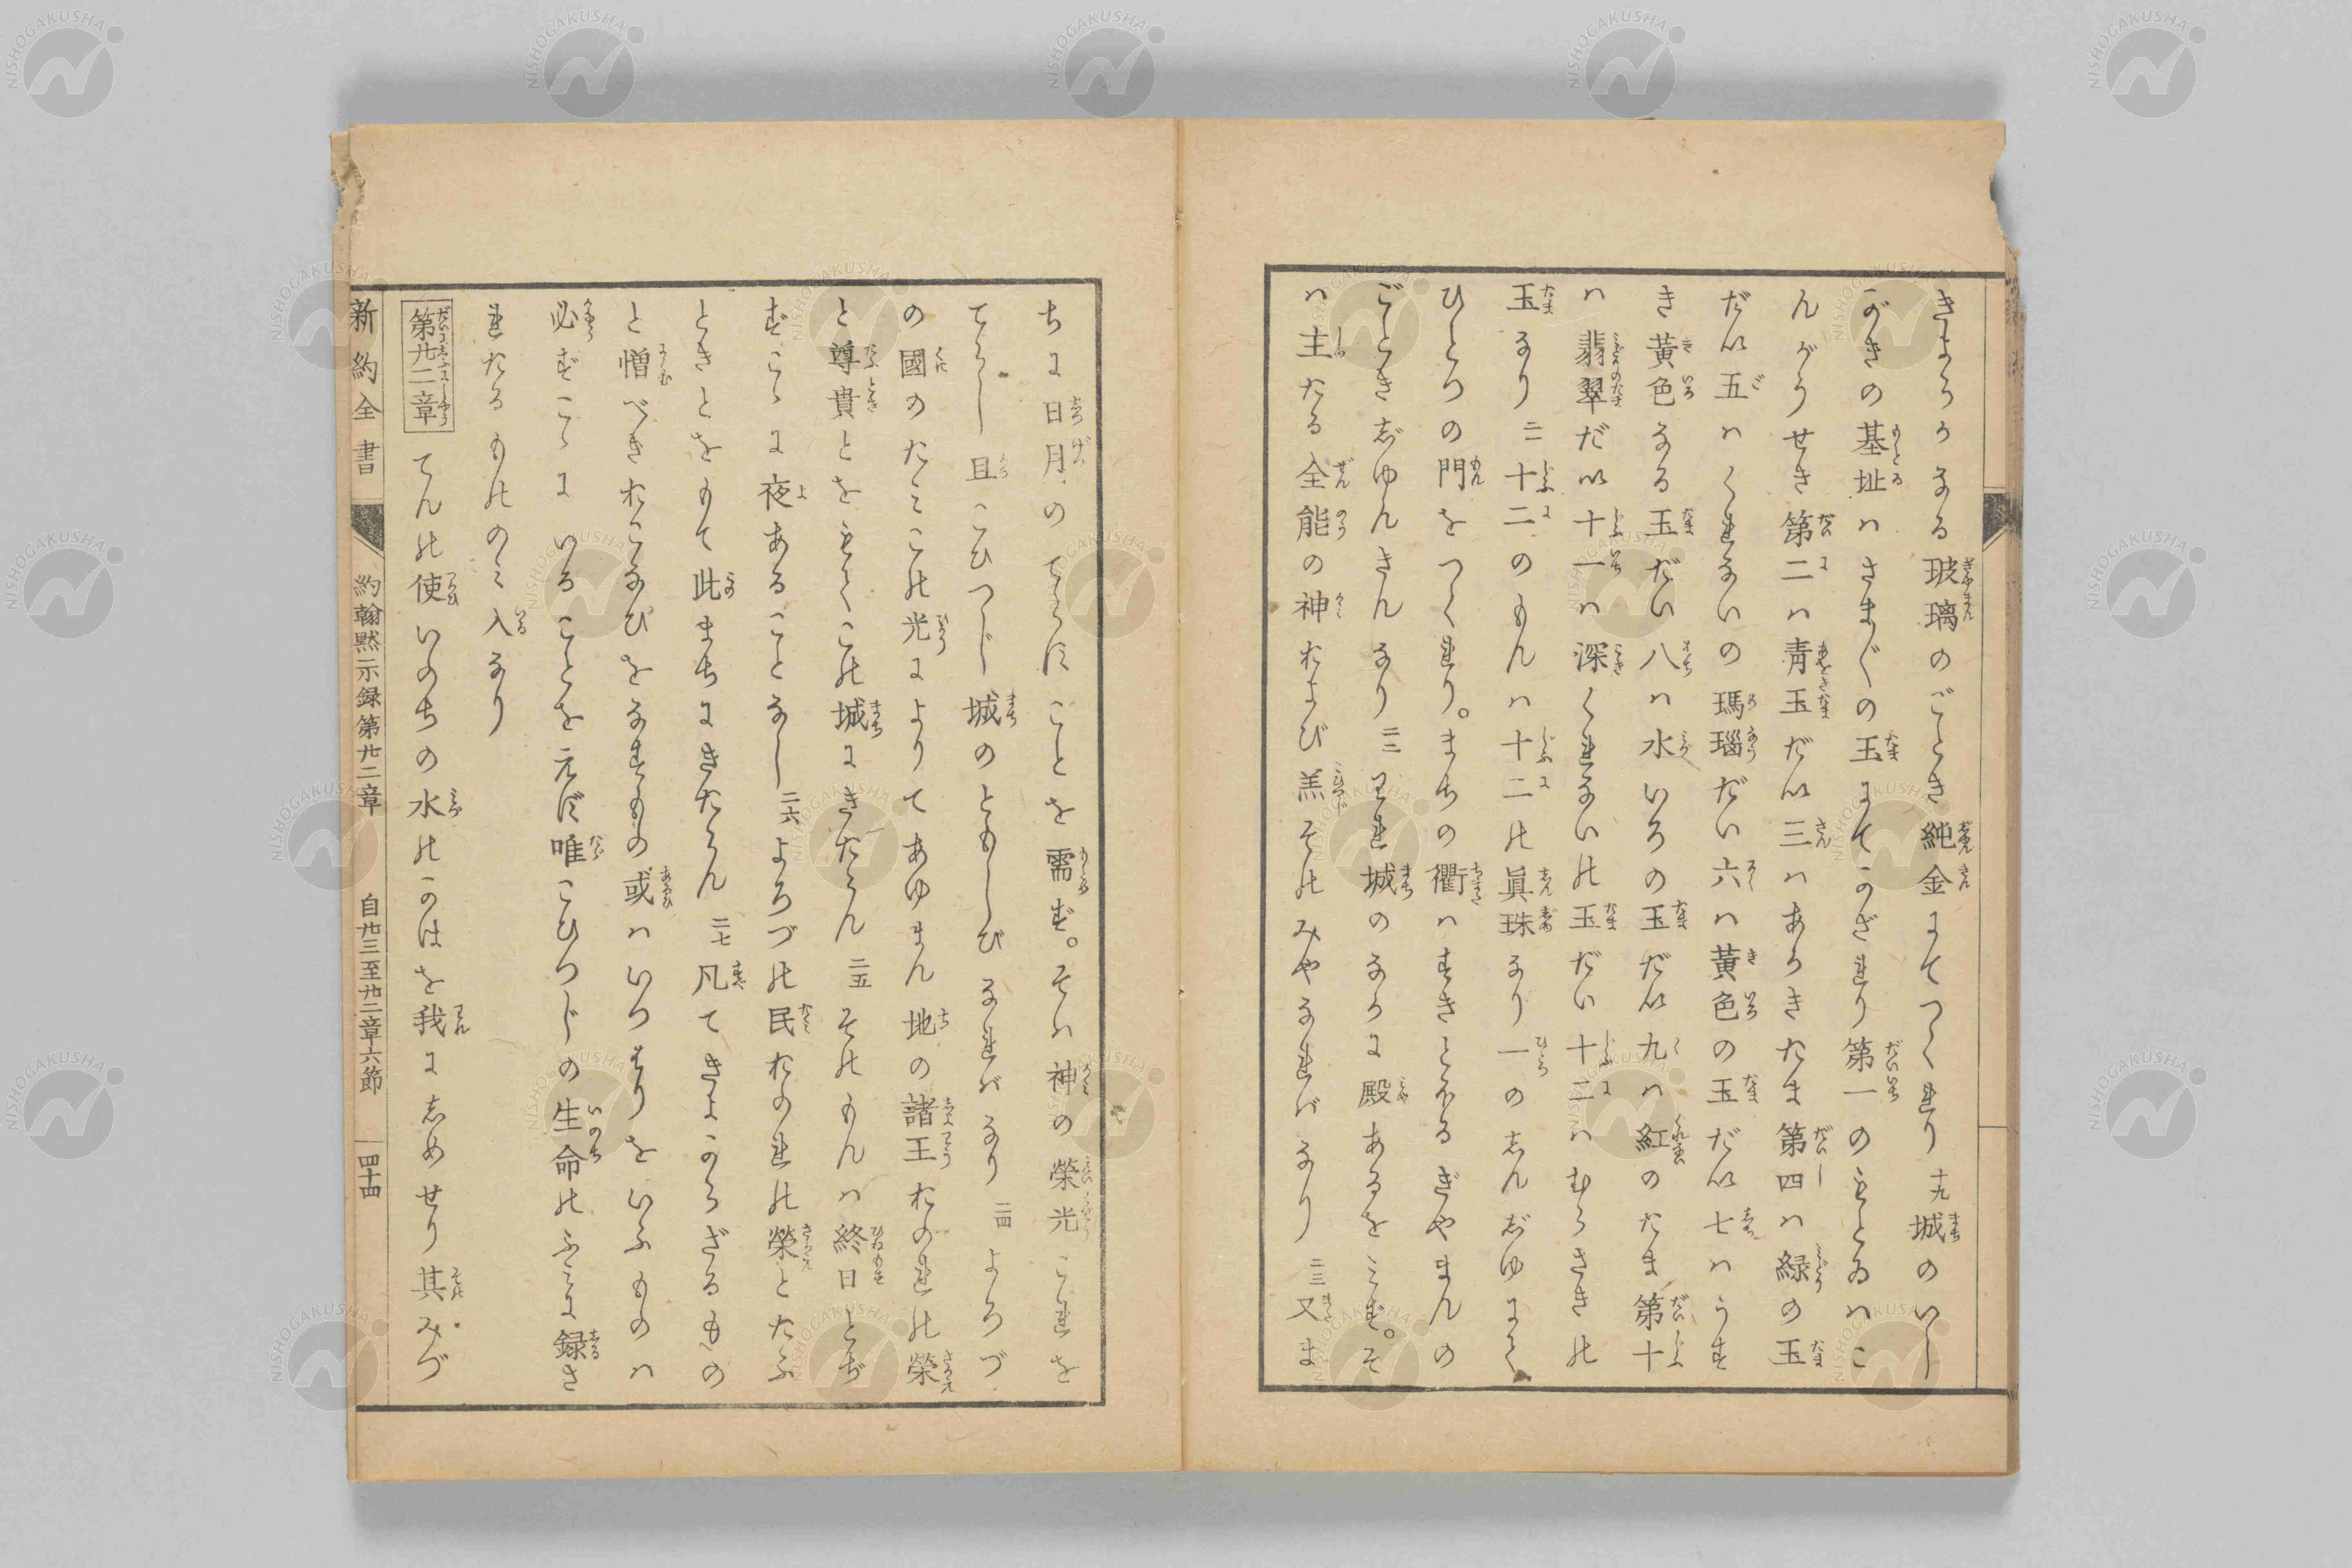 きよらかなる玻璃のごとき純金にてつくれり十九城のいし
がきの基址ハさまざまの玉にてかざれり第一のもとゐハこ
んがうせき第二ハ青玉だい三ハあかきたま第四ハ緑の玉
だい五ハくれなゐの瑪瑙だい六ハ黄色の玉だい七ハうす
き黄色なる玉だい八ハ水いろの玉だい九ハ紅のたま第十
ハ翡翠だい十一ハ深くれなゐの玉だい十二ハむらさきの
玉なり二一十二のもんハ十二の眞珠なり一のしんじゆにて
ひとつの門をつくれり。まちの衢ハすきとほるぎやまんの
ごときじゆんきんなり二二われ城のなかに殿あるをミず。そ
ハ主たる全能の神および羔そのみやなれバなり二三又ま
ちに日月のてらすことを需ず。そハ神の榮光これを
てらし且こひつじ城のともしびなれバなり二四よろづ
の國のたミこの光によりてあゆまん地の諸王おのれの榮
と尊貴とをもてこの城にきたらん二五そのもんハ終日とぢ
ずこゝに夜あることなし二六よろづの民おのれの榮とたふ
ときとをもて此まちにきたらん二七凡てきよからざるもの
と憎べきおこなひをなすもの或ハいつはりをいふものハ
必ずこゝにいることを元ず唯こひつじの生命のふミに録さ
れたるもののミ入なり
第廿二章 てんの使いのちの水のかはを我にしめせり其みづ
新約全書 約翰黙示録第廿二章 自廿三至廿二章六節 四十四